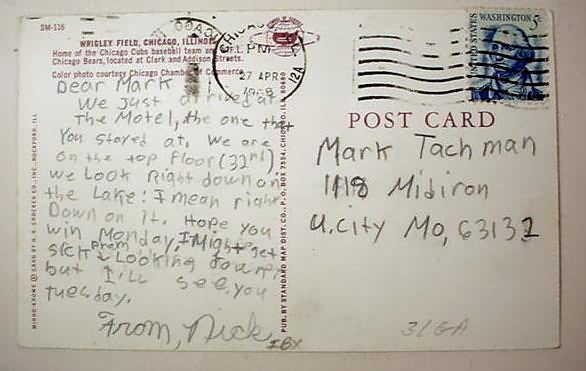 SM-116
WRIGLEY FIELD, CHICAGO, ILLINOIS
Home of the Chicago Cubs baseball team and
Chicago Bears, located at Clark and Addison Streets.
Color photo courtesy Chicago Chamber of Commerce
Dear Mark
We Just arrived at
The Motel, the one that
You stayed at. We are
on the top floor (32nd)
We Look Right down on
the Lake! I mean right
Down on it. Hope you
win Monday, I Might get
sick from Looking Down
but I'll see you
Tuesday.
From, Nick
IBX
MIRRO-KROME © CARD BY H. S. CROCKER CO., INC., ROCKFORD, ILL
PUB. BY STANDARD MAP DIST. CO., P. O. BOX 7554, CHICAGO, ILL 60680
CHICAGO
PM
27 APR
1968
UNITED STATES
WASHINGTON 5c
POST CARD
Mark Tachman
1118 Midiron
U.City Mo, 63132
3LGA